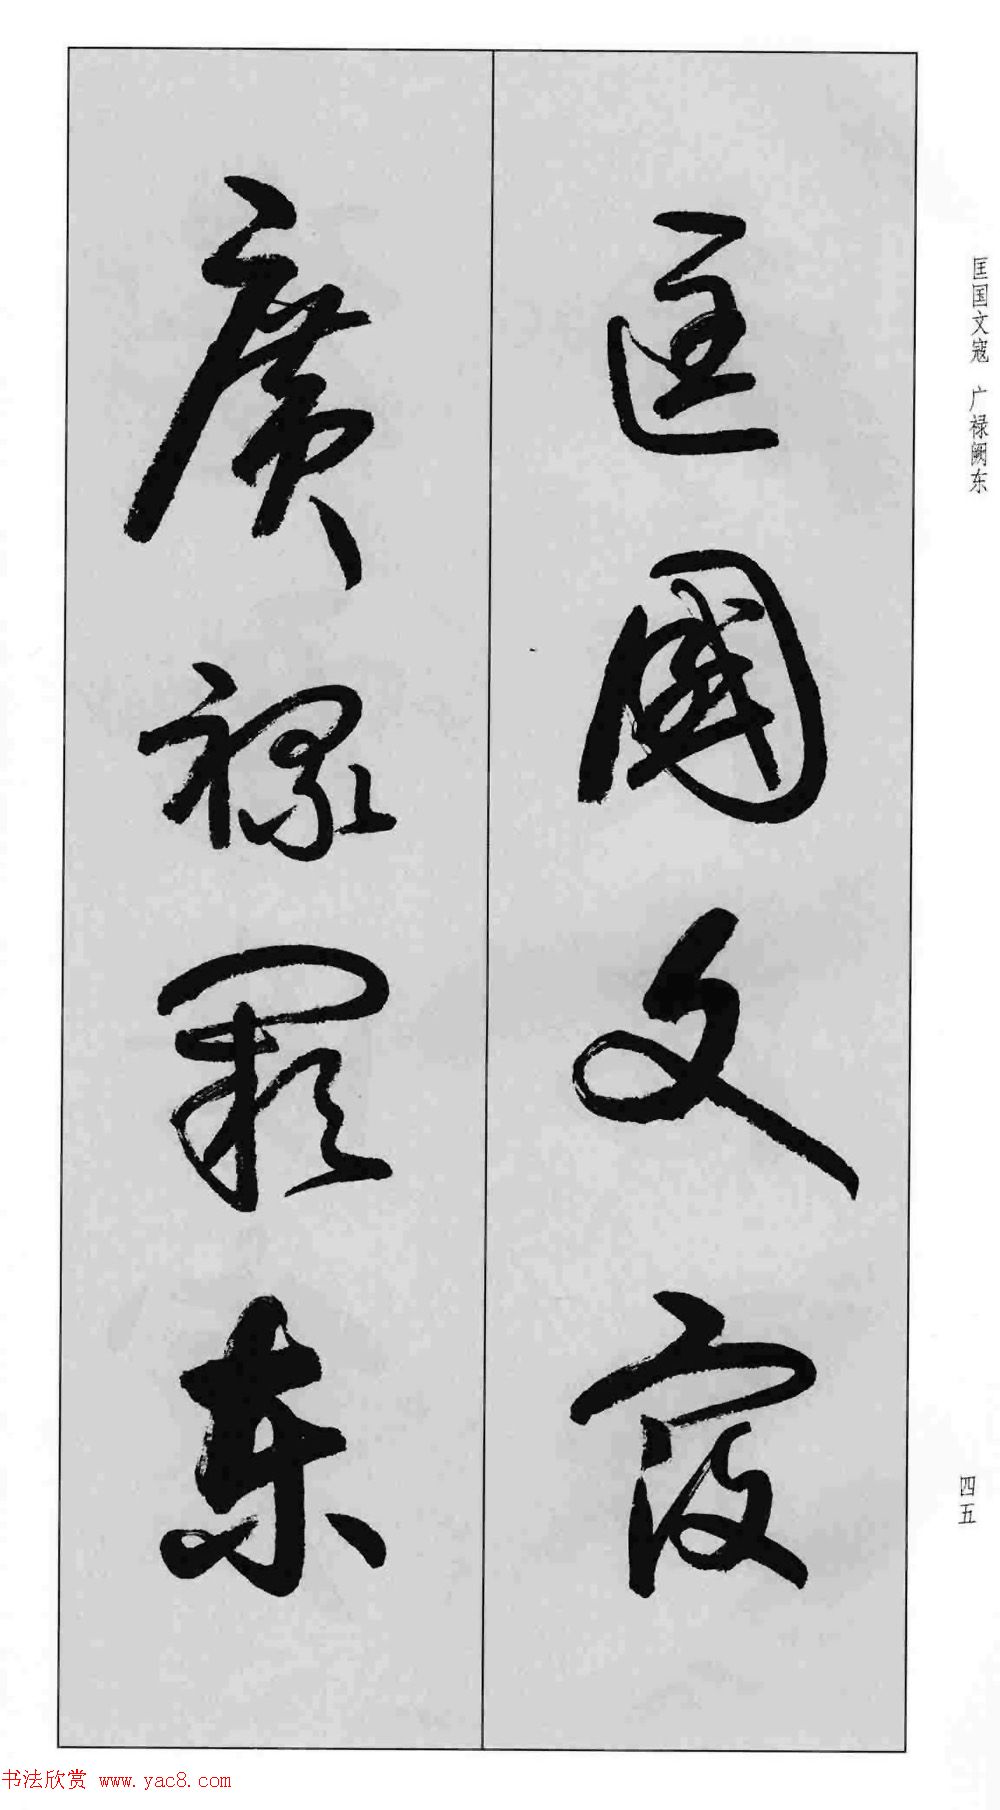 匡國文寇
廣祿闕东
匡国文寇 广禄阙东
四五
书法欣赏 www.yac8.com